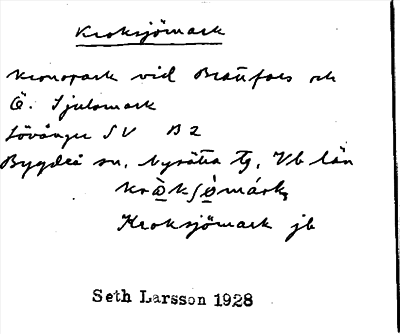 Kroksjömark
Kronopark vid Brattfors och
Ö. Sjulsmark
Lövånger SV B2
Bygdeå sn, Nysätra tg, Vb län
Kroksjömark jb
Seth Larsson 1928